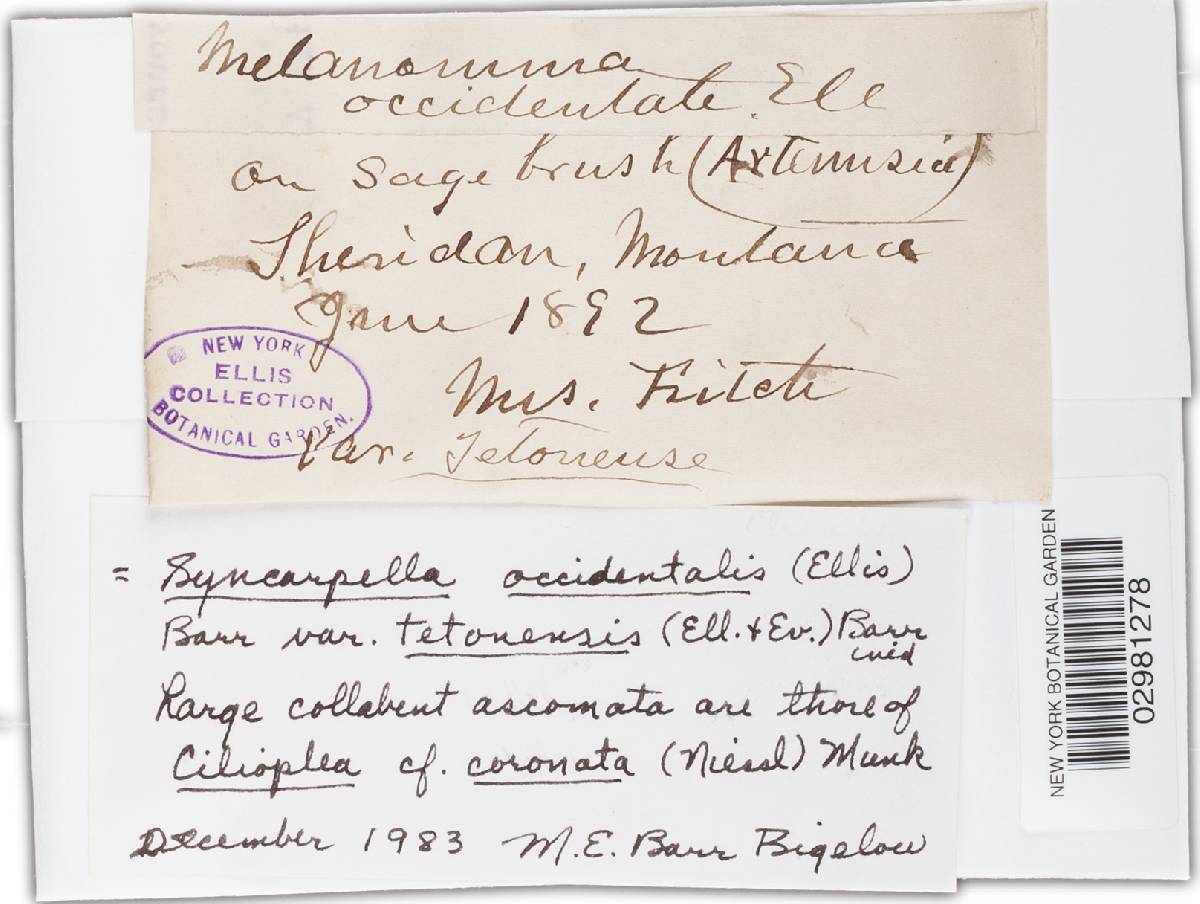 Melanomma
occidentale, Ell
on Sage brush (Artemisia)
Sheridan, Montana
June 1892
Mrs. Fitch
Var. Tetonense
NEW YORK
ELLIS
COLLECTION
BOTANICAL GARDEN.
= Syncarpella occidentalis (Ellis)
Barr var. tetonensis (Ell. & Ev.) Barr
ined
Large collabent ascomata are those of
Cilioplea cf. coronata (Niessl) Munk
December 1983 M.E. Barr Bigelow
NEW YORK BOTANICAL GARDEN
02981278